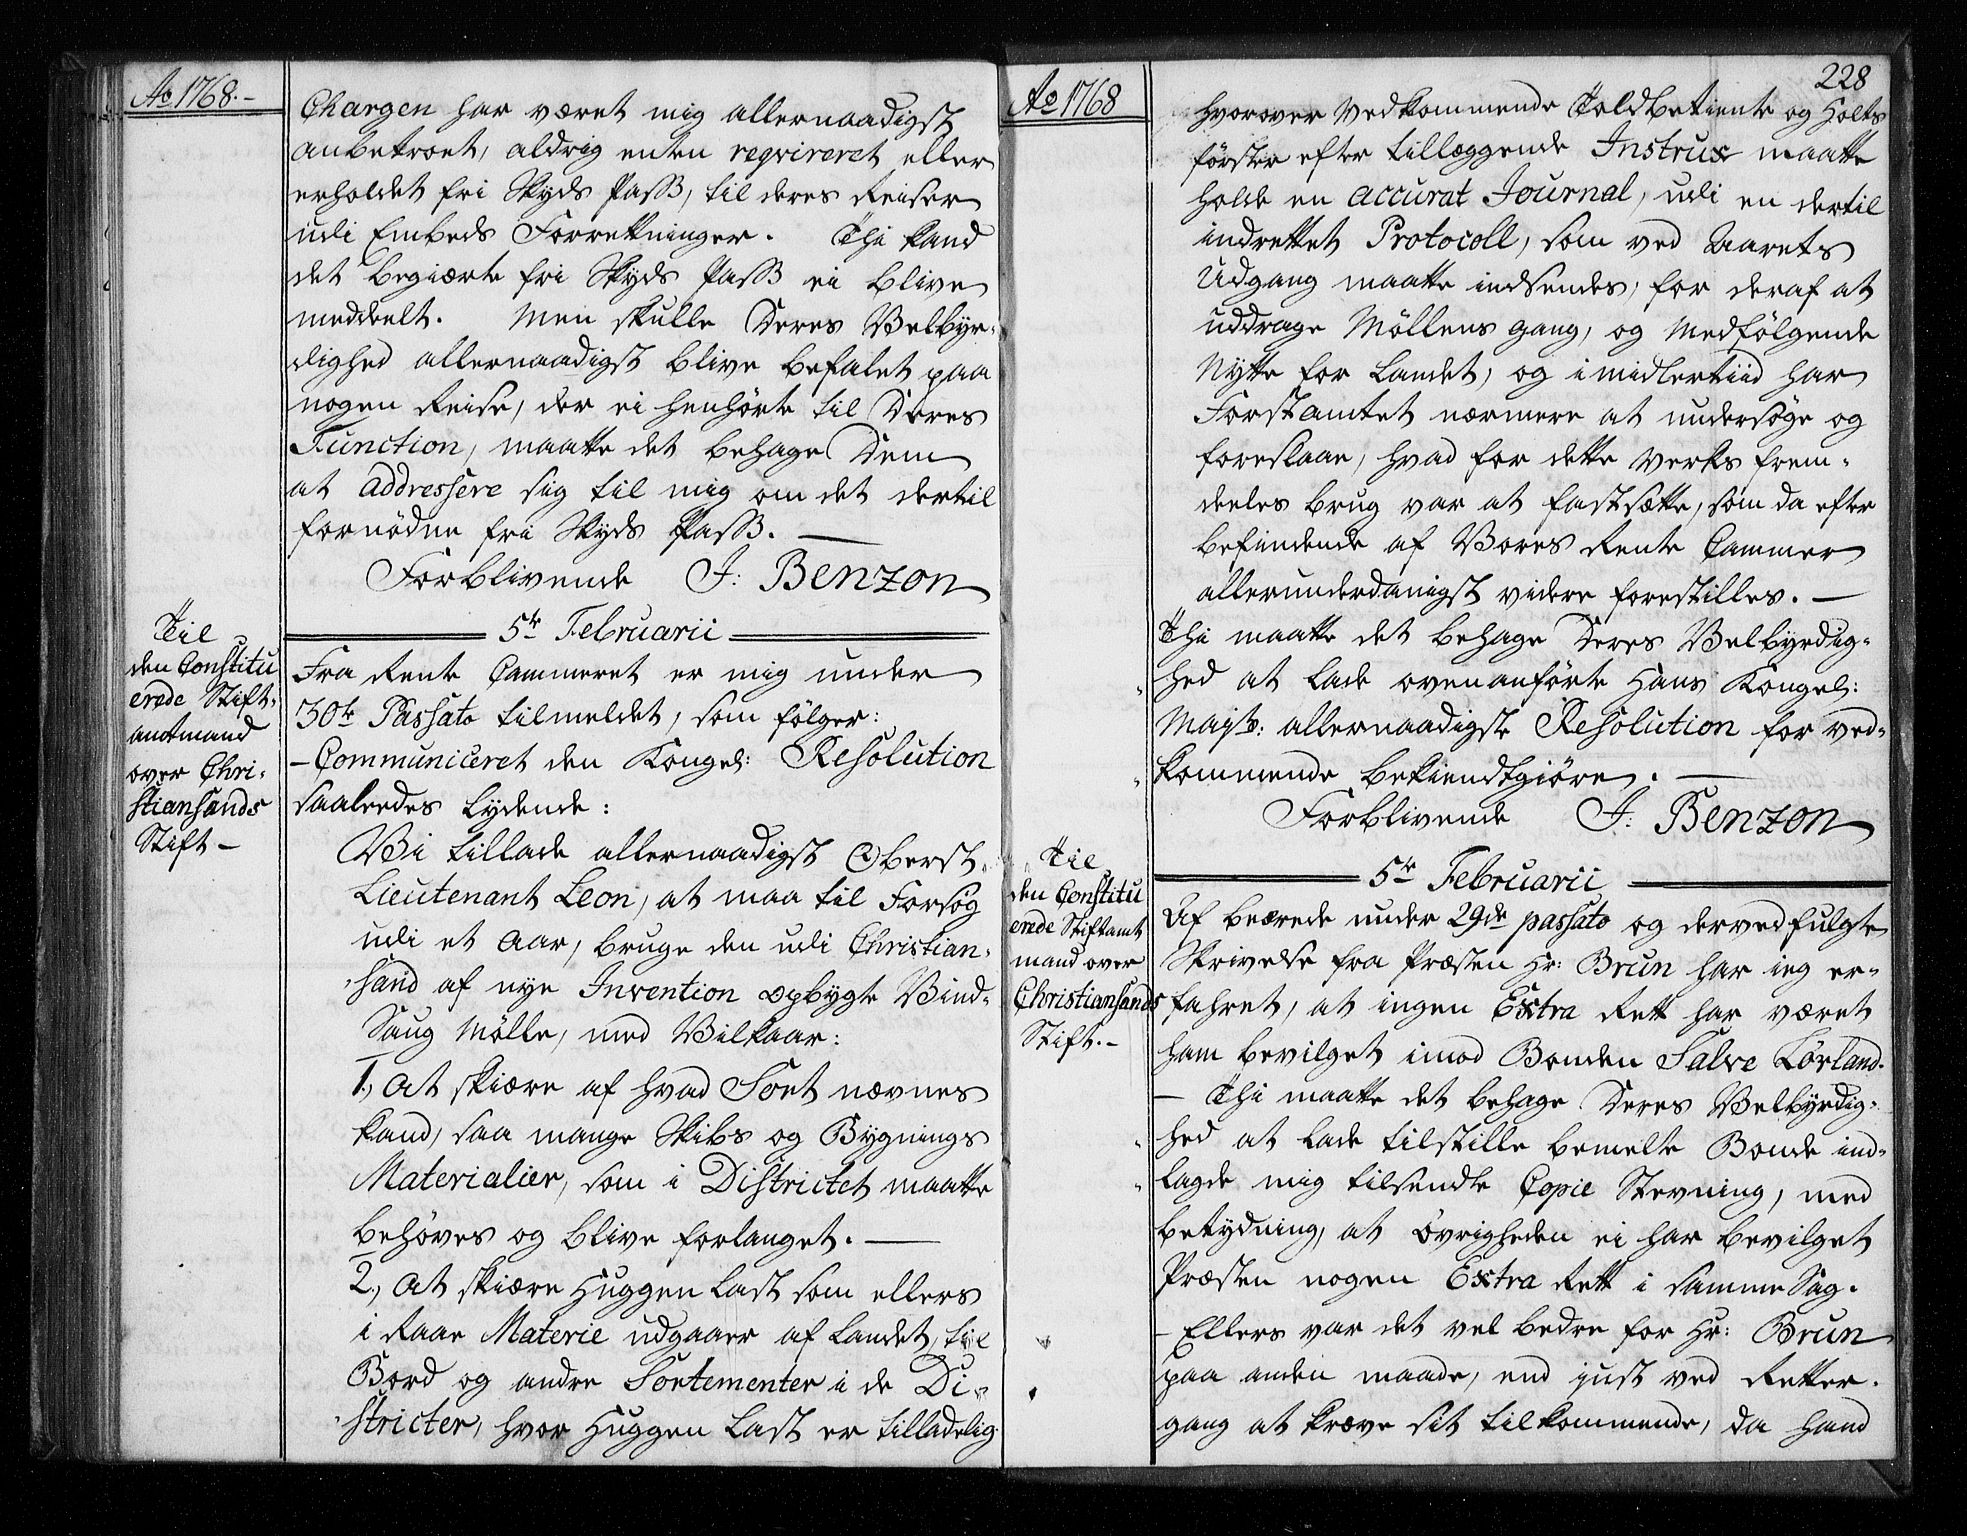 Ao 1768.-
Chargen har været mig allernaadigst
anbetroet, aldrig enten reqvireret eller
erholdet fri Skyds Pass, til deres Reiser
udi Embeds Forretninger. Thi kand
det begiærte fri Skyds Pass ei blive
meddeelt. Men skulle Deres Velbyr-
dighed allernaadigst blive befalet paa
nogen Reise, der ei henhörte til Deres
Function, maatte det behage Dem
at addressere sig til mig om det dertil
fornödne fri Skyds Pass. —
Forblivende J: Benzon
Til
den Constitu
erede Stift-
amtmand
over Chri-
stiansands
Stift -
5te Februarii
Fra Rente Cammeret er mig under
30te Passato tilmeldet, som fölger:
- Communiceret den Kongel: Resolution
saaledes lydende:
Vi tillade allernaadigst Oberst-
Lieutenant Leon, at maa til Forsög
udi et Aar, bruge den udi Christian-
sand af nye Invention opbygte Vind-
Saug Mölle, med Vilkaar:
1., At skiære af hvad Sort nævnes
kand, saa mange Skibs og Bygnings
Materialier, som i Districtet maatte
behöves og blive forlanget. —
2., At skiære Huggen Last som ellers
i Raae Materie udgaaer af Landet, til
Bord og andre Sortementer i de Di-
stricter, hvor Huggen Last er tilladelig
Ao 1768
228
hvorover vedkommende Toldbetiente og Holts
förster efter tillæggende Instrux maatte
holde en accurat Journal, udi en dertil
indrettet Protocoll, som ved Aarets
Udgang maatte indsendes, for deraf at
uddrage Möllens gang, og medfölgende
Nytte for Landet, og imidlertiid har
Forstamtet nærmere at undersöge og
foreslaae, hvad for dette Verks frem-
deeles brug var at fastsætte, som da efter
befindende af Vores Rente Cammer
allerunderdanigst videre forestilles. —
Thi maatte det behage Deres Velbyrdig-
hed at lade ovenanförte Hans Kongel:
Mayts: allernaadigste Resolution for ved-
kommende bekiendtgiöre. —
Forblivende J: Benzon
Til
den Constitu
erede Stiftamt
mand over
Christiansands
Stift.-
5te Februarii
Af beærede under 29de passato og dervedfulgte
Skrivelse fra Præsten Hr: Brun har ieg er-
fahret, at ingen Extra Rett har været
ham bevilget imod Bonden Salve Lörland.
- Thi maatte det behage Deres Velbyrdig-
hed at lade tilstille bemelte Bonde ind-
lagde mig tilsendte Copie Stevning, med
betydning, at Övrigheden ei har bevilget
Præsten nogen Extra Rett i samme Sag.
- Ellers var det vel bedre for Hr: Brun
paa anden maade, end just ved Retter-
gang at kræve sit tilkommende, da hand